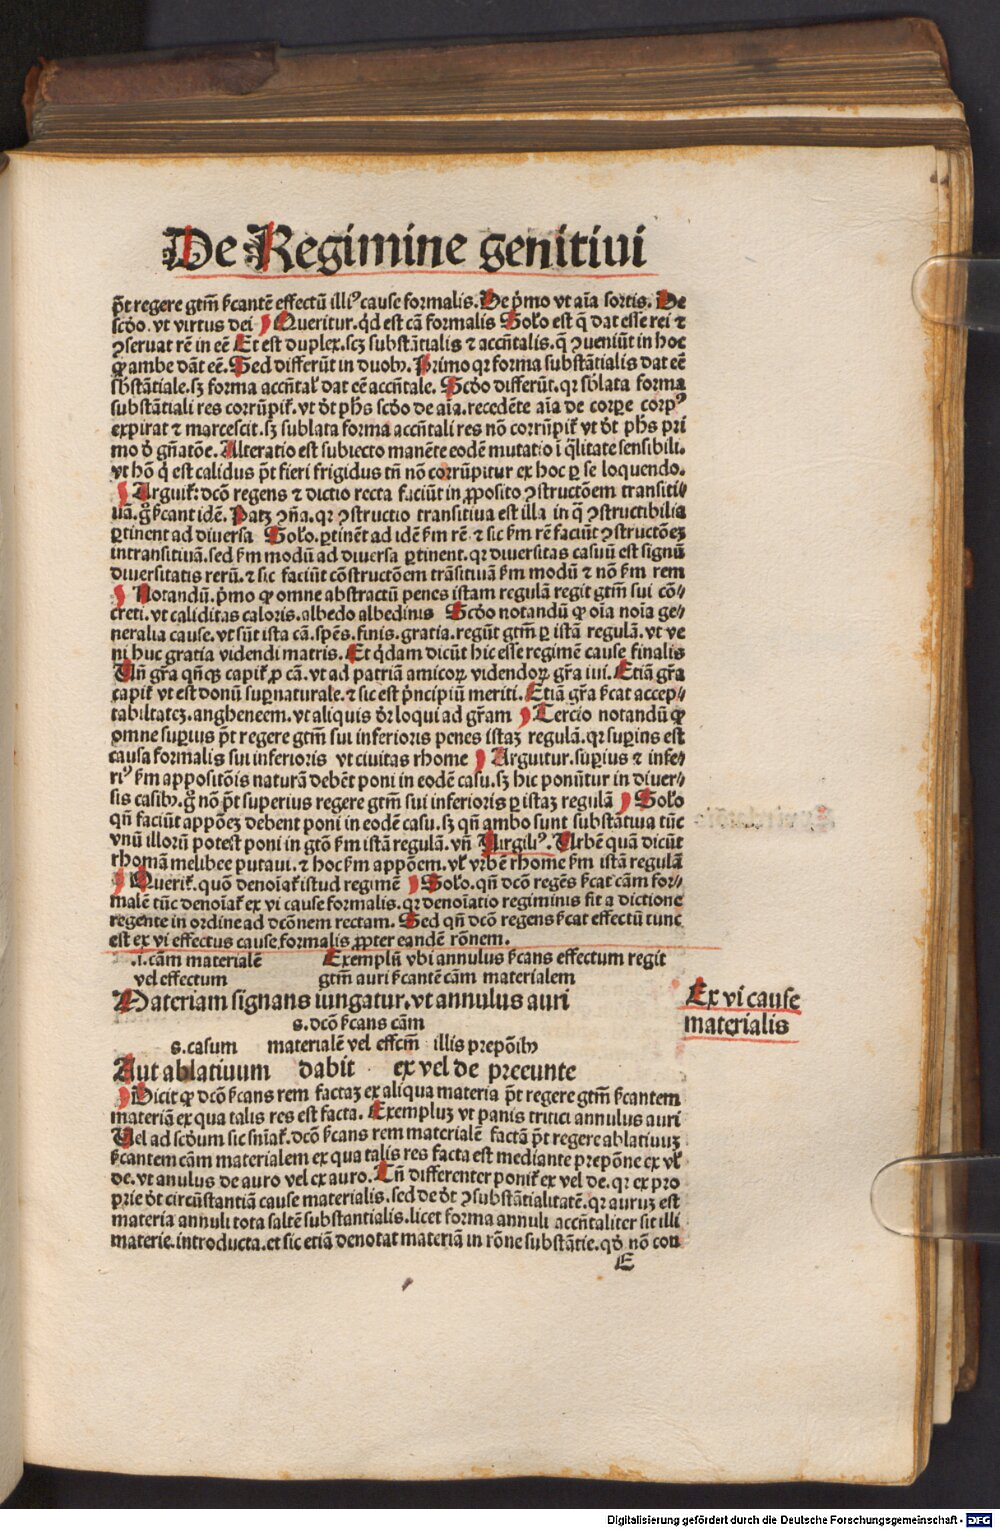 De Regimine genitiui
p̄t regere gtm̄ ſcantē effectū illiꝰ cauſe formalis. De p̄mo vt aīa ſortis. De
ſcd̄o. vt virtus dei Queritur. qd̄ eſt cā formalis Solo eſt q̄ dat eſſe rei ⁊
ꝯſeruat rē in eē Et eſt duplex. ſcꝫ ſubſtātialis ⁊ accn̄talis. q̄ ꝯueniūt in hoc
ꝙ ambe dāt eē. Sed differūt in duobꝰ. Primo qꝛ forma ſubſtātialis dat eē
ſbſtātiale. ſꝫ forma accn̄tal̄ dat eē accn̄tale. Scd̄o differūt. qꝛ ſb̄lata forma
ſubſtātiali res corrūpit̄. vt d̄t ph̄s ſcd̄o de aīa. recedēte aīa de corpe corpꝰ
expirat ⁊ marceſcit. ſꝫ ſublata forma accn̄tali res nō corrūpit̄ vt d̄t ph̄s pri
mo d̄ gn̄atōe. Alteratio eſt ſubiecto manēte eodē mutatio ī q̄litate ſenſibili.
vt hō q̄ eſt calidus p̄t fieri frigidus tn̄ nō corrūpitur ex hoc ꝑ ſe loquendo.
Arguit̄. dcō regens ⁊ dictio recta faciūt in ꝓpoſito ꝯſtructōem tranſiti⸗
uā. gͦ ſcant idē. Patꝫ ꝯn̄a. qꝛ ꝯſtructio tranſitiua eſt illa in q̄ ꝯſtructibilia
ꝑtinent ad diuerſa Solo. ꝑtinēt ad idē ſm rē ⁊ ſic ſm rē faciūt ꝯſtructōeꝫ
intranſitiuā. ſed ſm modū ad diuerſa ꝑtinent. qꝛ diuerſitas caſuū eſt ſignū
diuerſitatis rerū. ⁊ ſic faciūt cōſtructōem trāſitiuā ſm modū ⁊ nō ſm rem
Notandū. p̄mo ꝙ omne abſtractū penes iſtam regulā regit gtm̄ ſui cō⸗
creti. vt caliditas caloris. albedo albedinis Scd̄o notandū ꝙ oīa noīa ge⸗
neralia cauſe. vt ſūt iſta cā. ſpēs. finis. gratia. regūt gtm̄ ꝑ iſtā regulā. vt ve
ni huc gratia videndi matris. Et qd̄am dicūt hic eſſe regimē cauſe finalis
Un̄ gr̄a qn̄qꝫ capit̄ ꝓ cā. vt ad patriā amicoꝝ videndoꝝ gr̄a iui. Etiā gr̄a
capit̄ vt eſt donū ſupnaturale. ⁊ ſic eſt p̄ncipiū meriti. Etiā gr̄a ſcat accep⸗
tabiltateꝫ. angheneem. vt aliquis d̄r loqui ad gr̄am Tercio notandū ꝙ
omne ſuꝑius p̄t regere gtm̄ ſui inferioris penes iſtaꝫ regulā. qꝛ ſuꝑius eſt
cauſa formalis ſui inferioris vt ciuitas rhome Arguitur. ſuꝑius ⁊ infe⸗
riꝰ ſm appoſitōis naturā debēt poni in eodē caſu. ſꝫ hic ponūtur in diuer⸗
ſis caſibꝰ. gͦ nō p̄t ſuperius regere gtm̄ ſui inferioris ꝑ iſtaꝫ regulā Solo
qn̄ faciūt appōeꝫ debent poni in eodē caſu. ſꝫ qn̄ ambo ſunt ſubſtātiua tūc
vnū illorū poteſt poni in gtō ſm iſtā regulā. vn̄ Virgiliꝰ. Urbē quā dicūt
rhomā melibee putaui. ⁊ hoc ſm appōem. vl̄ vrbē rhome ſm iſtā regulā
Querit̄. quō denoīat̄ iſtud regimē Solo. qn̄ dcō regēs ſcat cām for⸗
malē tūc denoīat̄ ex vi cauſe formalis. qꝛ denoīatio regiminis fit a dictione
regente in ordine ad dcōnem rectam. Sed qn̄ dcō regens ſcat effectū tunc
eſt ex vi effectus cauſe formalis ꝓpter eandē rōnem.
.i. cām materialē Exemplū vbi annulus ſcans effectum regit
vel effectum gtm̄ auri ſcantē cām materialem
Materiam ſignans iungatur. vt annulus auri
Ex vi cauſe
materialis
s. dcō ſcans cām
s. caſum materialē vel effcm̄ illis prepōibꝰ
Aut ablatiuum dabit ex vel de preeunte
Dicit ꝙ dcō ſcans rem factaꝫ ex aliqua materia p̄t regere gtm̄ ſcantem
materiā ex qua talis res eſt facta. Exempluꝫ vt panis tritici annulus auri
Uel ad ſcd̄um ſic ſnīat̄. dcō ſcans rem materialē factā p̄t regere ablatiuuꝫ
ſcantem cām materialem ex qua talis res facta eſt mediante prepōne ex vl̄
de. vt anulus de auro vel ex auro. Tn̄ differenter ponit̄ ex vel de. qꝛ ex pro
prie d̄t circūſtantiā cauſe materialis. ſed de d̄t ꝯſubſtātialitatē. qꝛ auruꝫ eſt
materia annuli tota ſaltē ſubſtantialis. licet forma annuli accn̄taliter ſit illi
materie. introducta. et ſic etiā denotat materiā in rōne ſubſtātie. qd̄ nō con
E
Digitalisierung gefördert durch die Deutsche Forschungsgemeinschaft - DFG